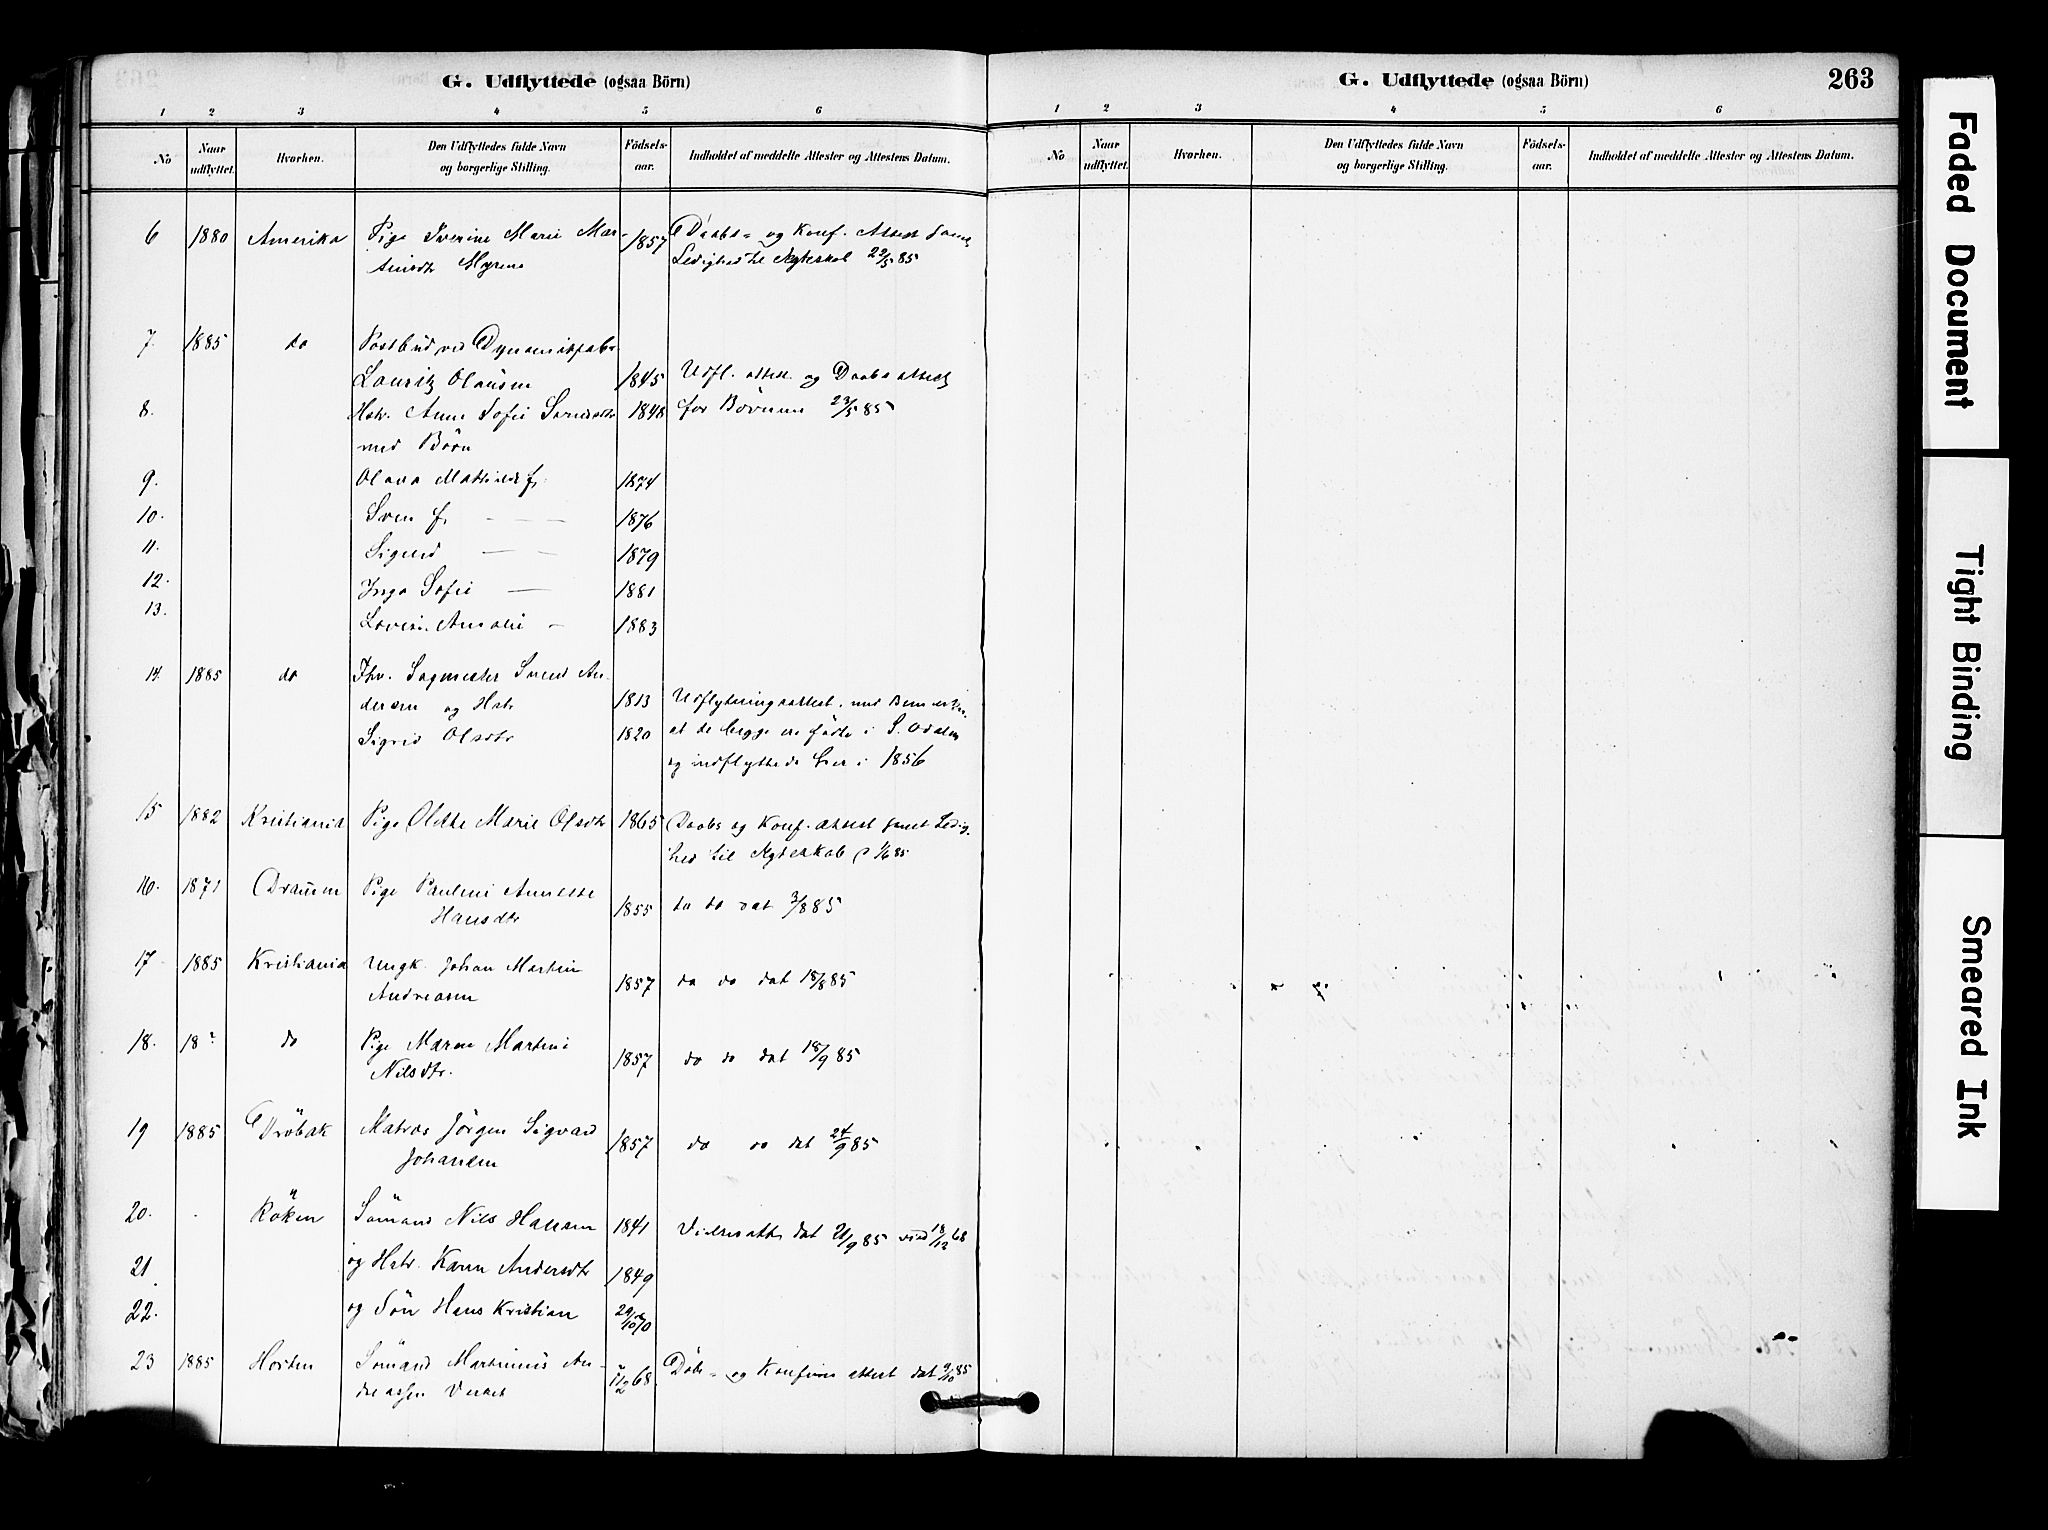 G. Udflyttede (ogsaa Börn)
1 2 3 4 5 6
No
Naar udflyttet.
Hvorhen.
Den Udflyttedes fulde Navn og borgerlige Stilling.
Födsels-aar.
Indholdet af meddelte Attester og Attestens Datum.
6 1880 Amerika Pige Iverine Marie Mar- 1857 Daabs- og Konf. Attest samt
Myrene Ledighed til Ægteskab 22/5 85
7. 1885 do Postbud ved
Lauritz Olausen 1845 Udfl. attest. og Daabsattest
8. Hstr. Anne Sofie 1848 for Börnene 23/5 85
med Börn
9. Olava 1874
10. Sven — — — 1876
11. Sigurd — — 1879
12. Inga Sofie — 1881
13. Amalie — 1883
14. 1885 do Fhv. Sagmester Svend An-
dersen og Hstr 1813 Udflytningsattest, med
Sigrid Olsdtr 1820 at de begge ere födte i S. Odalen
og indflyttede her i 1856
15 1882 Kristiania Pige Olette Marie Olsdtr 1865 Daabs og Konf. attest samt Ledig-
hed til Ægteskab 1/6 85
16. 1871 Drammen Pige Pauline Annette
Hansdtr 1855 do do dat 3/8 85
17 1885 Kristiania Ungk. Johan Martin
Andreasen 1857 do do dat 18/8 85
18. 18? do Pige Maren Martine
Nilsdtr. 1857 do do dat 18/9 85
19 1885 Dröbak Matros Jörgen Sigvard
Johansen 1857 do do dat 24/9 85
20. Röken Sömand Nils Hansen 1841 Vielsesatt dat 21/9 85 viet 18/12 68
21. og Hstr. Karen Andersdtr 1849
22. og Sön Hans Kristian 29/10 70
23 1885 Horten Sömand Martinius An- 68 Döbs- og Konfirm attest dat 9/10 85
dreassen
G. Udflyttede (ogsaa Börn) 263
1 2 3 4 5 6
No
Naar udflyttet.
Hvorhen.
Den Udflyttedes fulde Navn og borgerlige Stilling.
Födsels-aar.
Indholdet af meddelte Attester og Attestens Datum.
Faded Document
Tight Binding
Smeared Ink